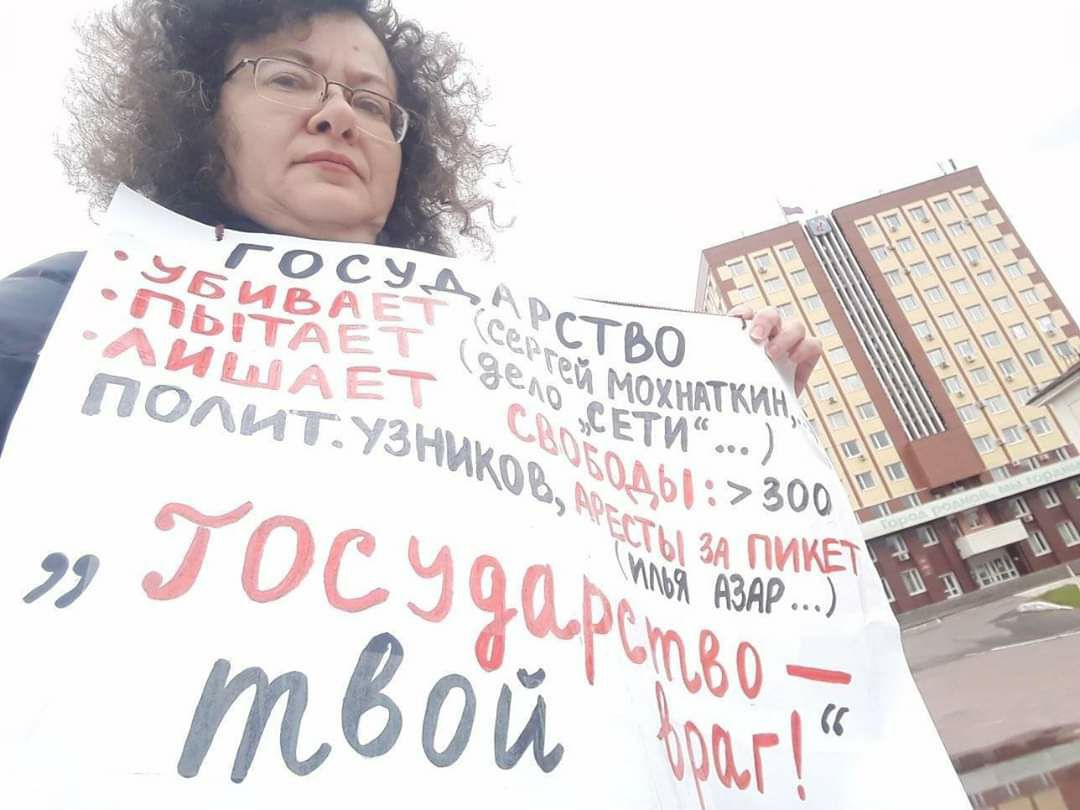 ГОСУДАРСТВО
• УБИВАЕТ (СЕРГЕЙ МОХНАТКИН,..)
• ПЫТАЕТ (дело „СЕТИ“...)
• ЛИШАЕТ СВОБОДЫ: > 300
ПОЛИТ. УЗНИКОВ, АРЕСТЫ ЗА ПИКЕТ
(ИЛЬЯ АЗАР...)
„Государство —
твой враг!“
Город родной, мы